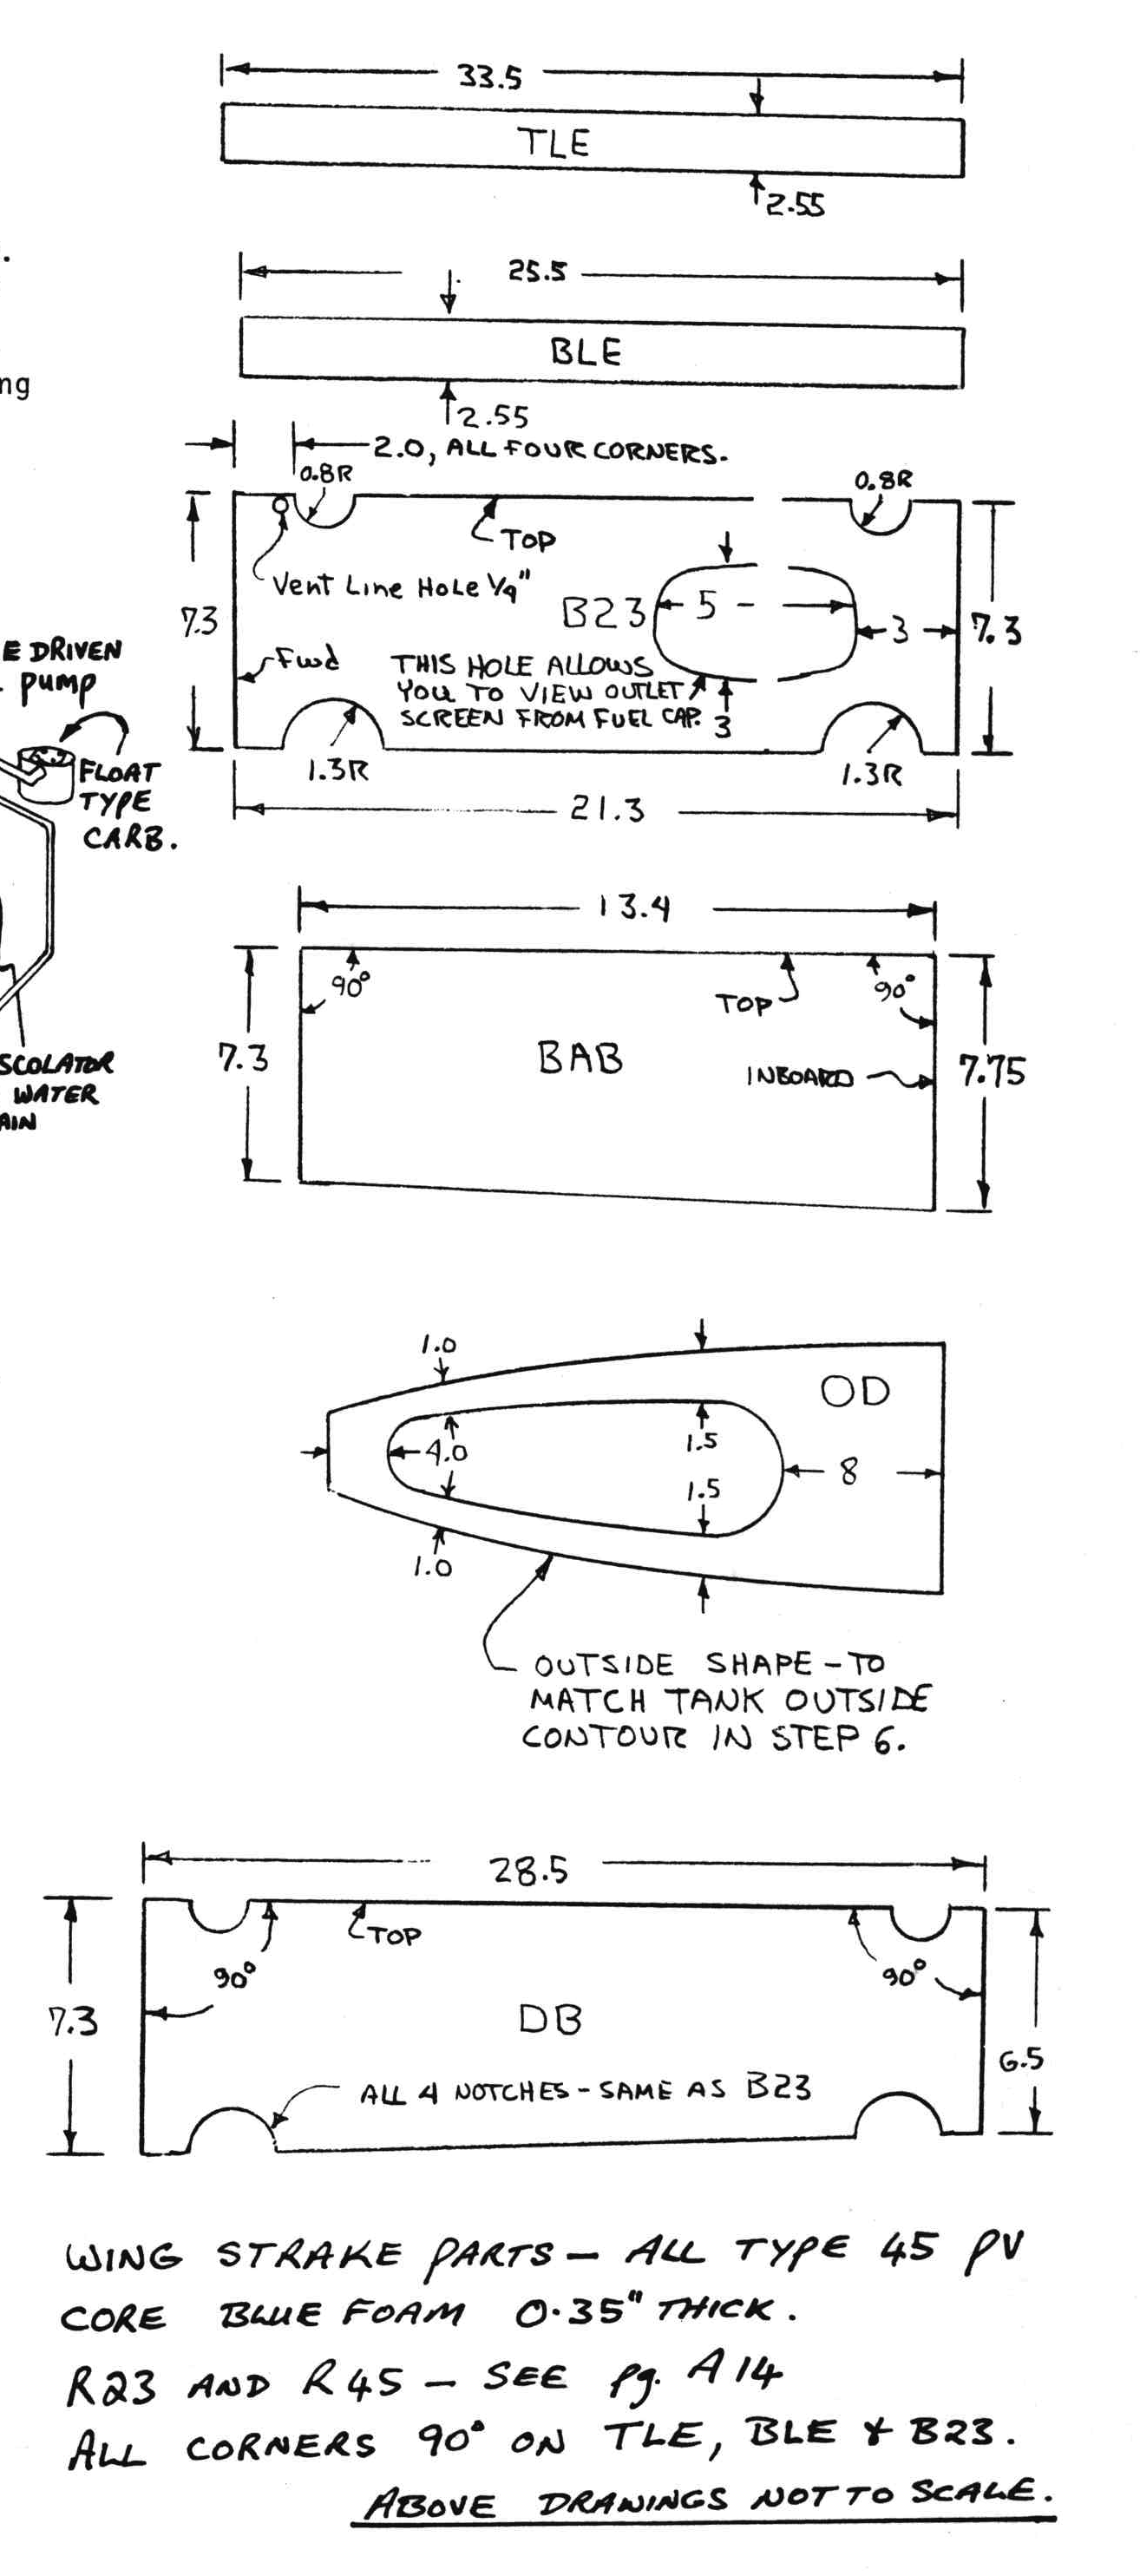 33.5
TLE
2.55
.
25.5
BLE
ng
2.55
2.0, ALL FOUR CORNERS.
0.8R
0.8R
TOP
Vent Line Hole 1/4"
B23
5
7.3
3
7.3
Fwd
THIS HOLE ALLOWS
YOU TO VIEW OUTLET
SCREEN FROM FUEL CAP.
3
1.3R
1.3R
21.3
E DRIVEN
. pump
FLOAT
TYPE
CARB.
13.4
90°
TOP
90°
7.3
BAB
INBOARD
7.75
SCOLATOR
WATER
AIN
1.0
OD
4.0
1.5
8
1.5
1.0
OUTSIDE SHAPE - TO
MATCH TANK OUTSIDE
CONTOUR IN STEP 6.
28.5
TOP
90°
90°
7.3
DB
6.5
ALL 4 NOTCHES - SAME AS B23
WING STRAKE PARTS - ALL TYPE 45 PV
CORE BLUE FOAM 0.35" THICK.
R23 AND R45 - SEE pg. A14
ALL CORNERS 90° ON TLE, BLE & B23.
ABOVE DRAWINGS NOT TO SCALE.